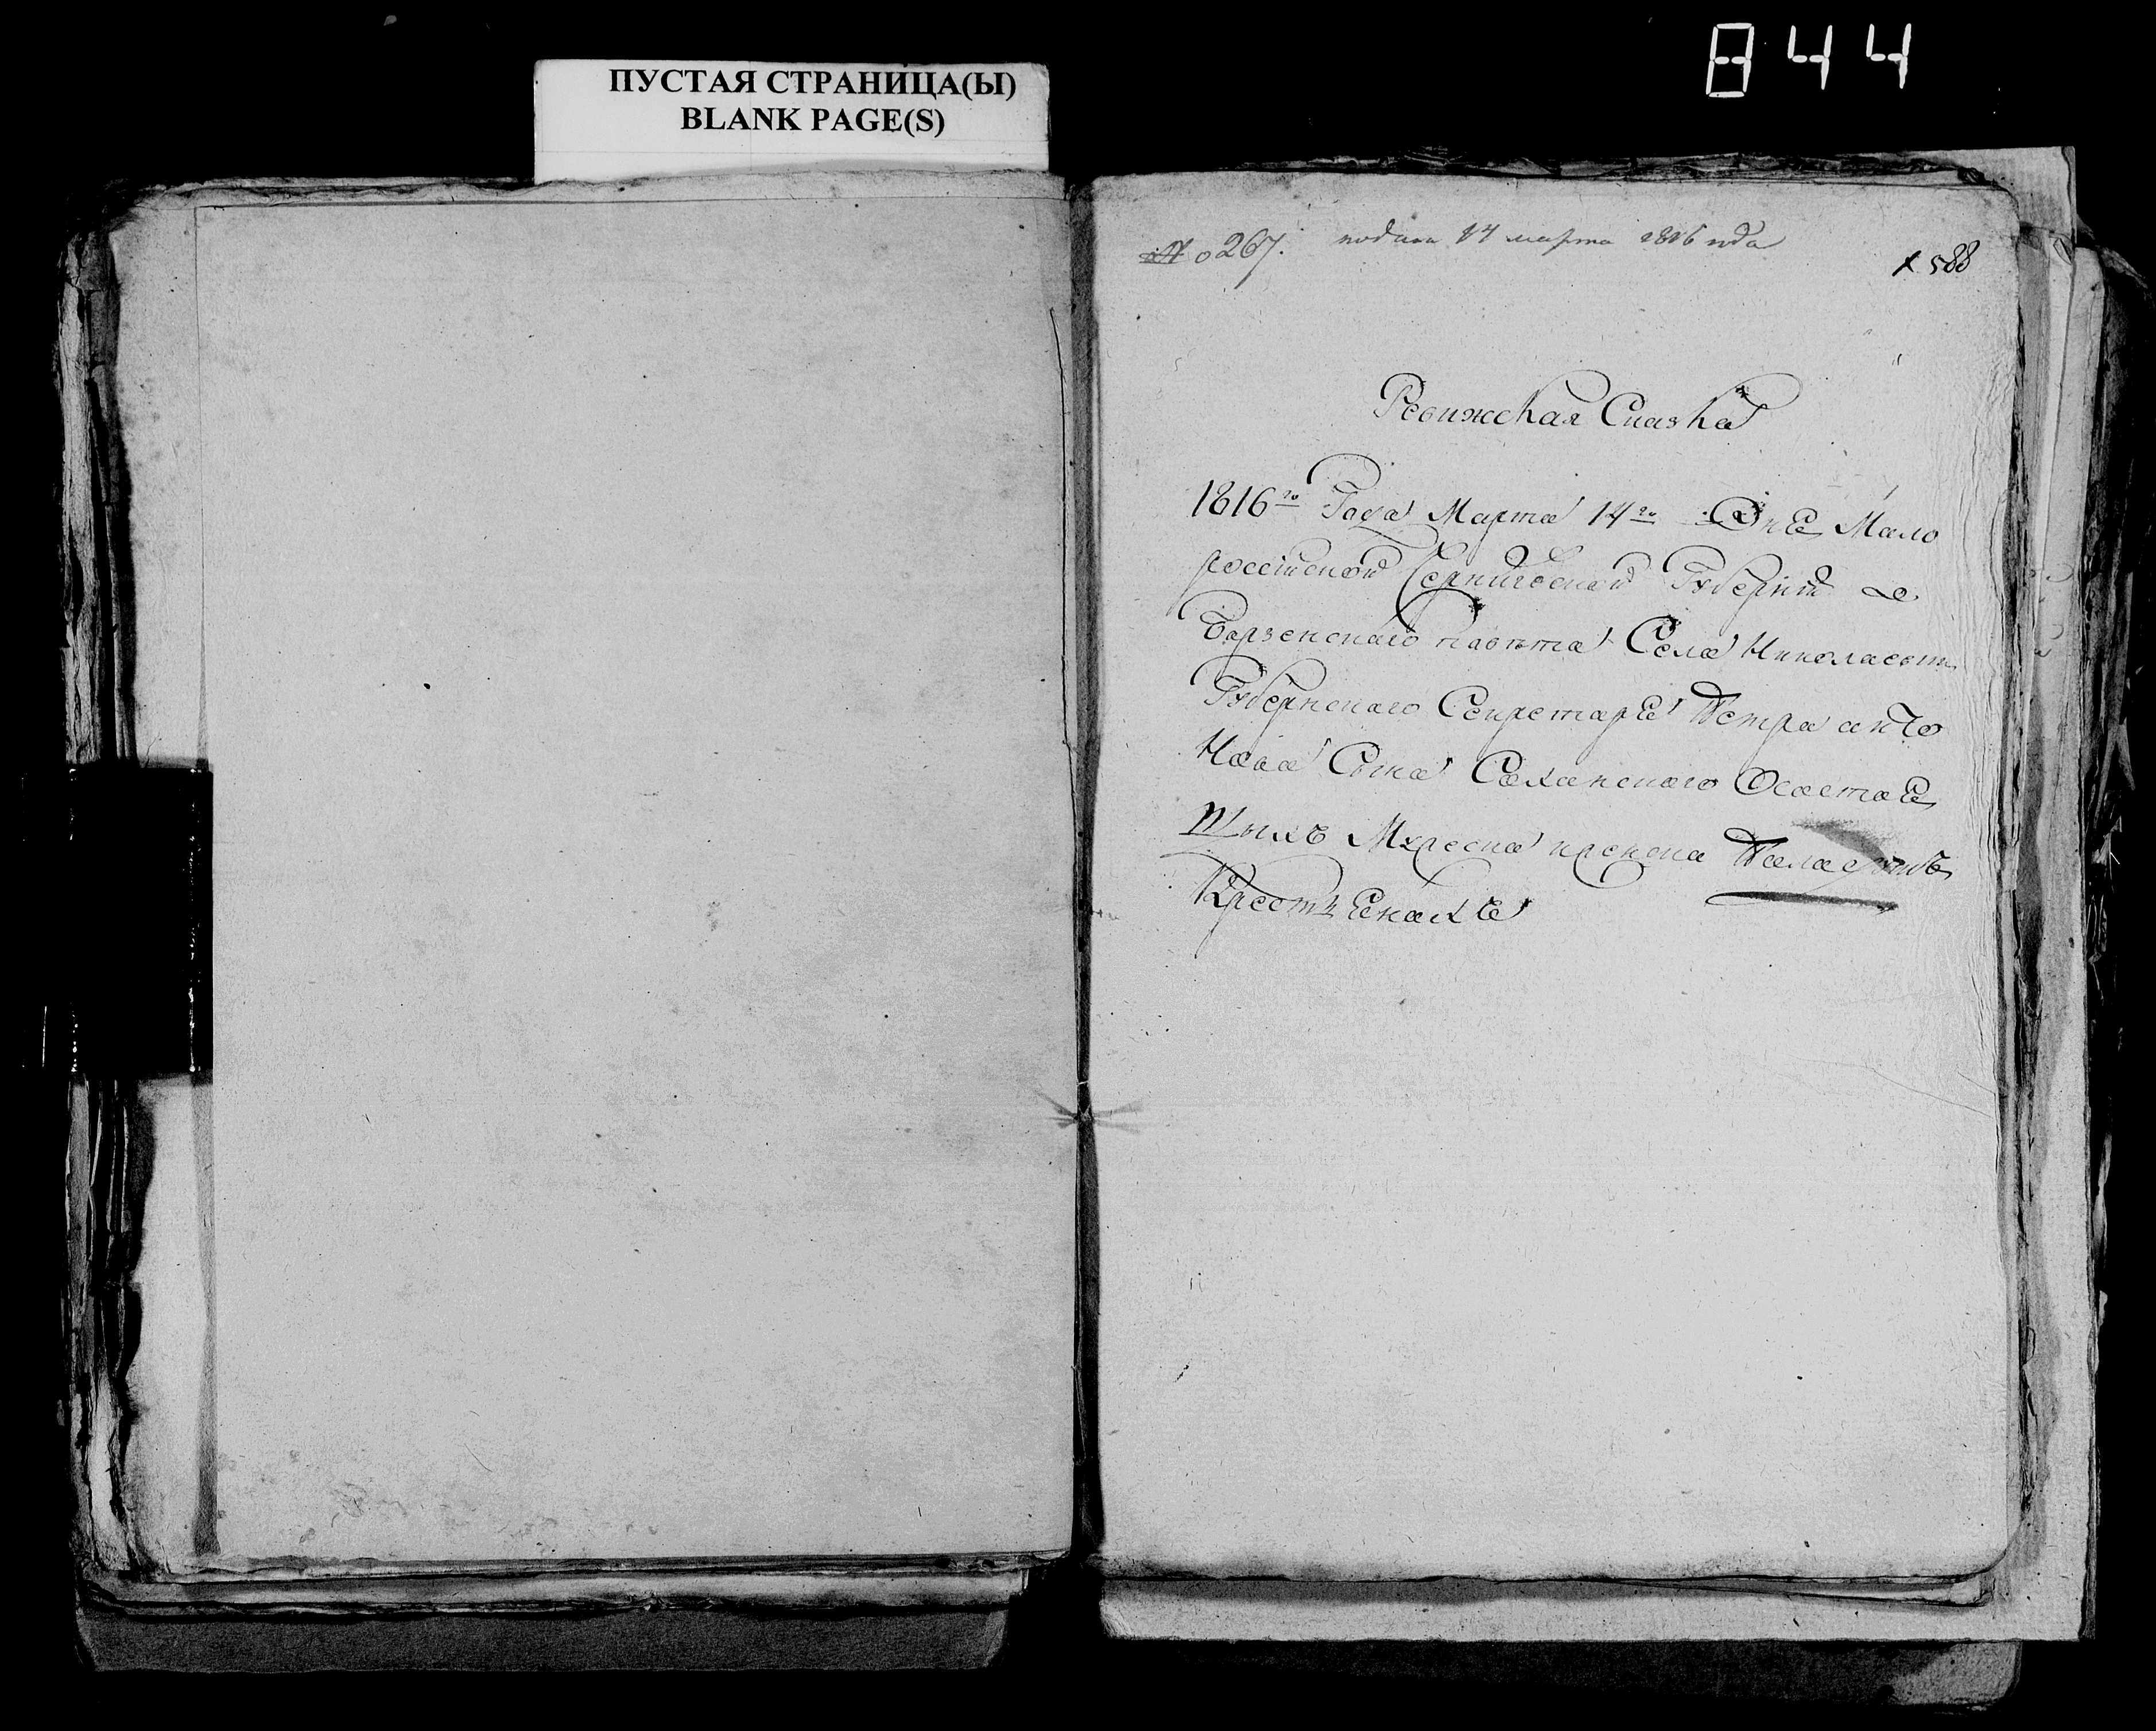 844
ПУСТАЯ СТРАНИЦА(Ы)
BLANK PAGE(S)
№ 267. подана 14 марта 1816 года
588
Ревижская Сказка
1816го Года Марта 14го Дня Мало
россійской Черниговской Губерніи
Борзенского повѣта Села Николаевки
Губернского Секретаря Петра
Сына Саханского Оставе
шыхъ
Крестьянахъ